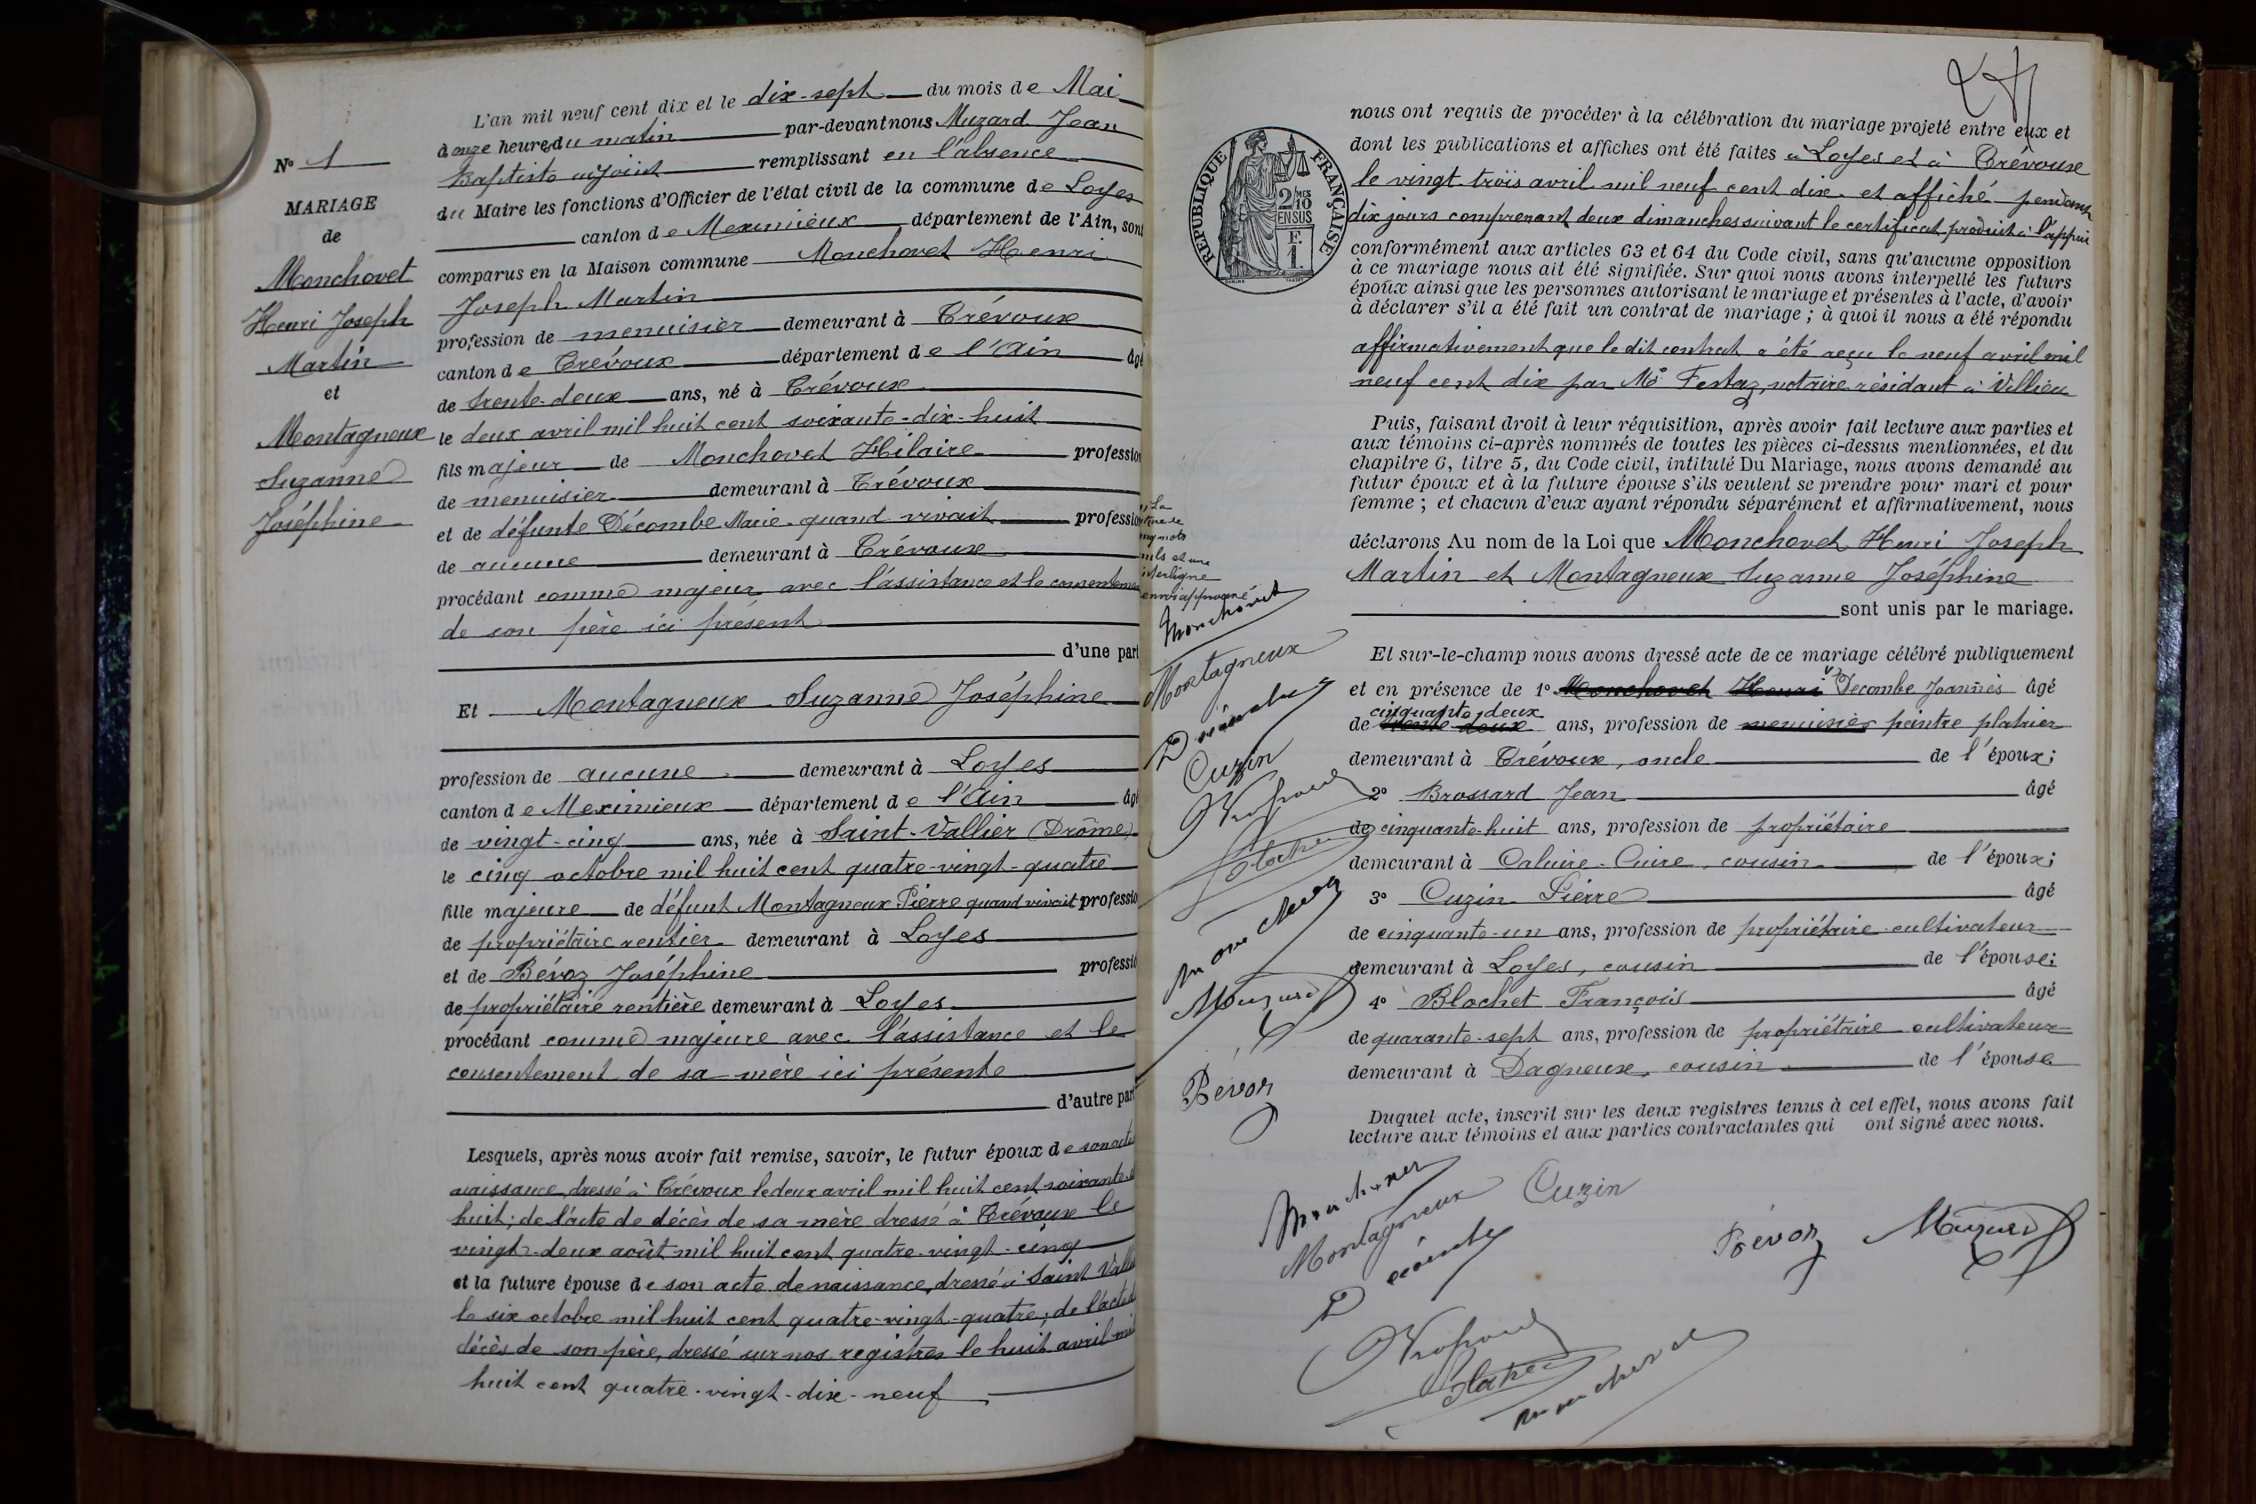 N° 1
MARIAGE
de
Monchovet
Henri Joseph
Martin
et
Montagneux
Suzanne
Joséphine
L'an mil neuf cent dix et le dix-sept du mois de Mai
à onze heures du matin par-devant nous Muzard Jean
Baptiste adjoint remplissant en l'absence
du Maire les fonctions d'Officier de l'état civil de la commune de Loyes
canton de Meximieux département de l'Ain, sont
comparus en la Maison commune Monchovet Henri
Joseph Martin
profession de menuisier demeurant à Trévoux
canton de Trévoux département de l'Ain âgé
de trente-deux ans, né à Trévoux
le deux avril mil huit cent soixante-dix-huit
fils majeur de Monchovet Hilaire profession
de menuisier demeurant à Trévoux
et de défunte Décombe Marie quand vivait profession
de aucune demeurant à Trévoux
procédant comme majeur avec l'assistance et le consentement
de son père ici présent
d'une part
Et Montagneux Suzanne Joséphine
profession de aucune demeurant à Loyes
canton de Meximieux département de l'Ain âgé
de vingt-cinq ans, née à Saint-Vallier (Drôme)
le cinq octobre mil huit cent quatre-vingt-quatre
fille majeure de défunt Montagneux Pierre quand vivait profession
de propriétaire rentier demeurant à Loyes
et de Bévoz Joséphine profession
de propriétaire rentière demeurant à Loyes
procédant comme majeure avec l'assistance et le
consentement de sa mère ici présente
d'autre part
Lesquels, après nous avoir fait remise, savoir, le futur époux de son acte
naissance, dressé à Trévoux le deux avril mil huit cent soixante
huit; de l'acte de décès de sa mère dressé à Trévoux le
vingt-deux août mil huit cent quatre-vingt-cinq
et la future épouse de son acte de naissance, dressé à Saint Vallier
le six octobre mil huit cent quatre-vingt-quatre; de l'acte de
décès de son père, dressé sur nos registres le huit avril mil
huit cent quatre-vingt-dix-neuf
RÉPUBLIQUE FRANÇAISE
2 MES
10
EN SUS
F.
1
nous ont requis de procéder à la célébration du mariage projeté entre eux et
dont les publications et affiches ont été faites à Loyes et à Trévoux
le vingt-trois avril mil neuf cent dix et affiché pendant
dix jours comprenant deux dimanches suivant le certificat produit à l'appui
conformément aux articles 63 et 64 du Code civil, sans qu'aucune opposition
à ce mariage nous ait été signifiée. Sur quoi nous avons interpellé les futurs
époux ainsi que les personnes autorisant le mariage et présentes à l'acte, d'avoir
à déclarer s'il a été fait un contrat de mariage; à quoi il nous a été répondu
affirmativement que le dit contrat a été reçu le neuf avril mil
neuf cent dix par Me Festaz, notaire résidant à Villieu
Puis, faisant droit à leur réquisition, après avoir fait lecture aux parties et
aux témoins ci-après nommés de toutes les pièces ci-dessus mentionnées, et du
chapitre 6, titre 5, du Code civil, intitulé Du Mariage, nous avons demandé au
futur époux et à la future épouse s'ils veulent se prendre pour mari et pour
femme; et chacun d'eux ayant répondu séparément et affirmativement, nous
déclarons Au nom de la Loi que Monchovet Henri Joseph
Martin et Montagneux Suzanne Joséphine
sont unis par le mariage.
Et sur-le-champ nous avons dressé acte de ce mariage célébré publiquement
et en présence de 1° Monchovet Henri Decombe Joannès âgé
cinquante-deux
de trente-deux ans, profession de menuisier peintre plâtrier
demeurant à Trévoux, oncle de l'époux;
2° Brossard Jean âgé
de cinquante-huit ans, profession de propriétaire
demeurant à Caluire-Cuire, cousin de l'époux;
3° Cuzin Pierre âgé
de cinquante-un ans, profession de propriétaire cultivateur
demeurant à Loyes, cousin de l'épouse;
4° Blochet François âgé
de quarante-sept ans, profession de propriétaire cultivateur
demeurant à Dagneux, cousin de l'épouse
Duquel acte, inscrit sur les deux registres tenus à cet effet, nous avons fait
lecture aux témoins et aux parties contractantes qui ont signé avec nous.
La
mots
nuls et une
interligne
approuvé
Monchovet
Montagneux
Décombe
Cuzin
Blochet
Monchovet
Muzard
Bévoz
Monchovet
Montagneux
Cuzin
Décombe
Bévoz
Muzard
Blochet
Monchovet